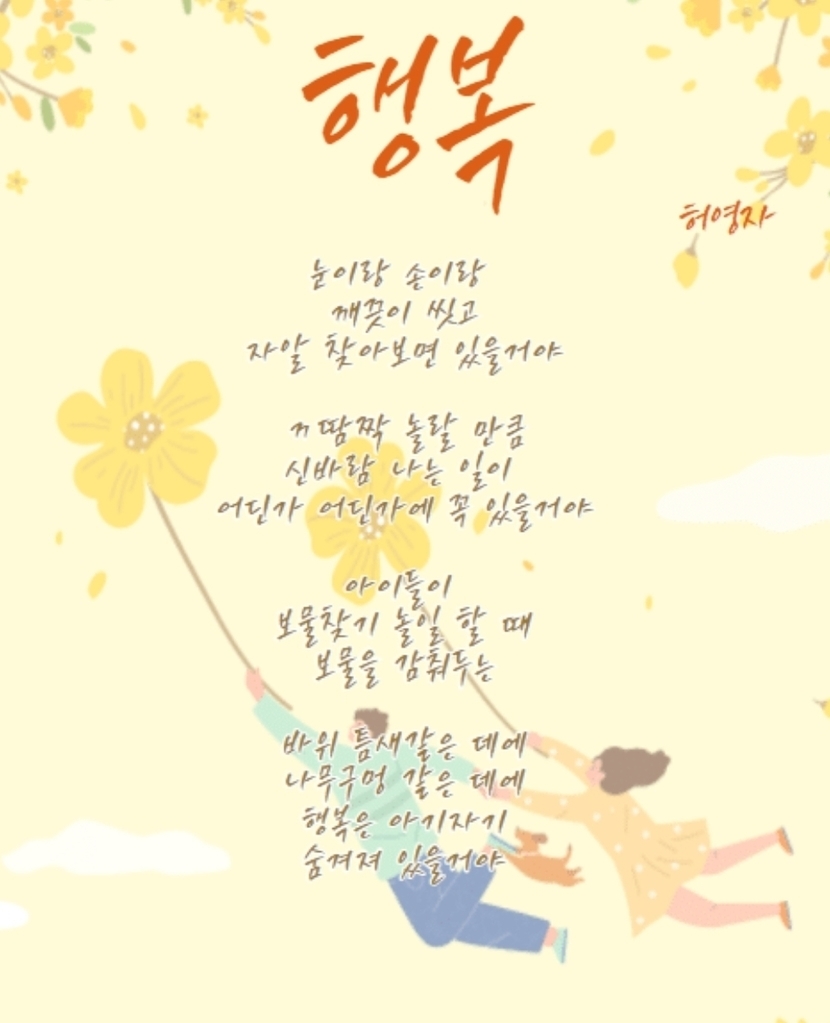 행복
허영자
눈이랑 손이랑
깨끗이 씻고
자알 찾아보면 있을거야
ㄲ땀짝 놀랄 만큼
신바람 나는 일이
어딘가 어딘가에 꼭 있을거야
아이들이
보물찾기 놀일 할 때
보물을 감춰두는
바위 틈새같은 데에
나무구멍 같은 데에
행복은 아기자기
숨겨져 있을거야